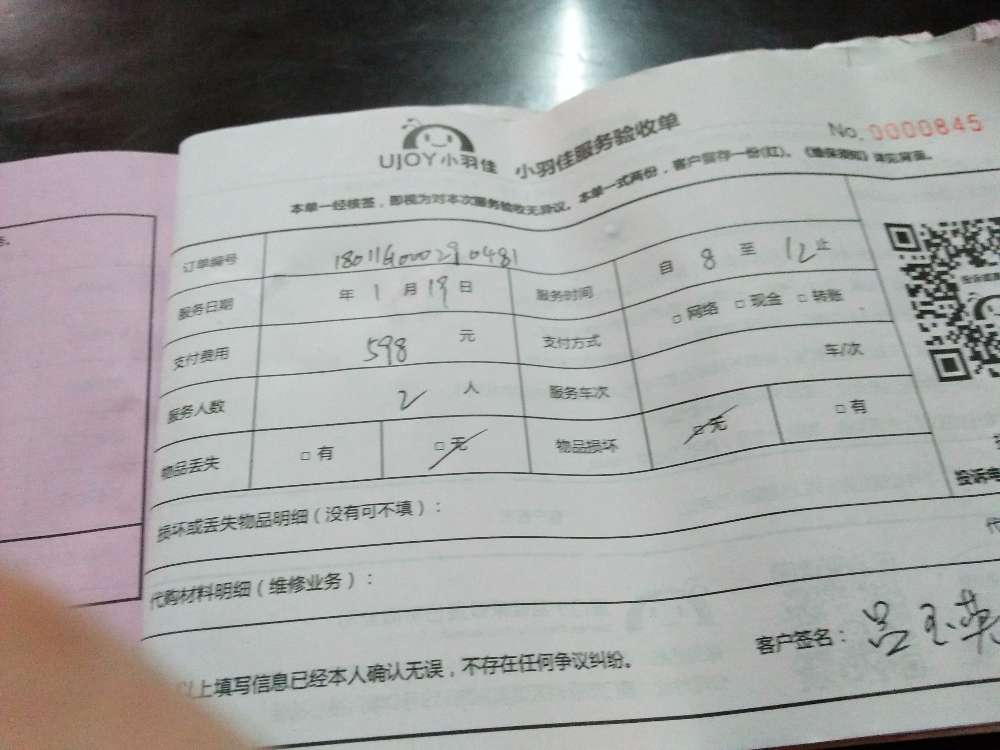 UJOY小羽佳 小羽佳服务验收单 No. 0000845
本单一经核签，即视为对本次服务验收无异议。本单一式两份，客户留存一份(红)。《维保须知》请见背面。
订单编号 18011G000290481
服务日期 年 1 月 19 日 服务时间 自 8 至 12 止
支付费用 598 元 支付方式 □ 网络 □ 现金 □ 转账
服务人数 2 人 服务车次 车/次
物品丢失 □ 有 □ 无 物品损坏 □ 无 □ 有
投诉电
损坏或丢失物品明细（没有可不填）：
代购材料明细（维修业务）：
代
以上填写信息已经本人确认无误，不存在任何争议纠纷。 客户签名： 吕玉英